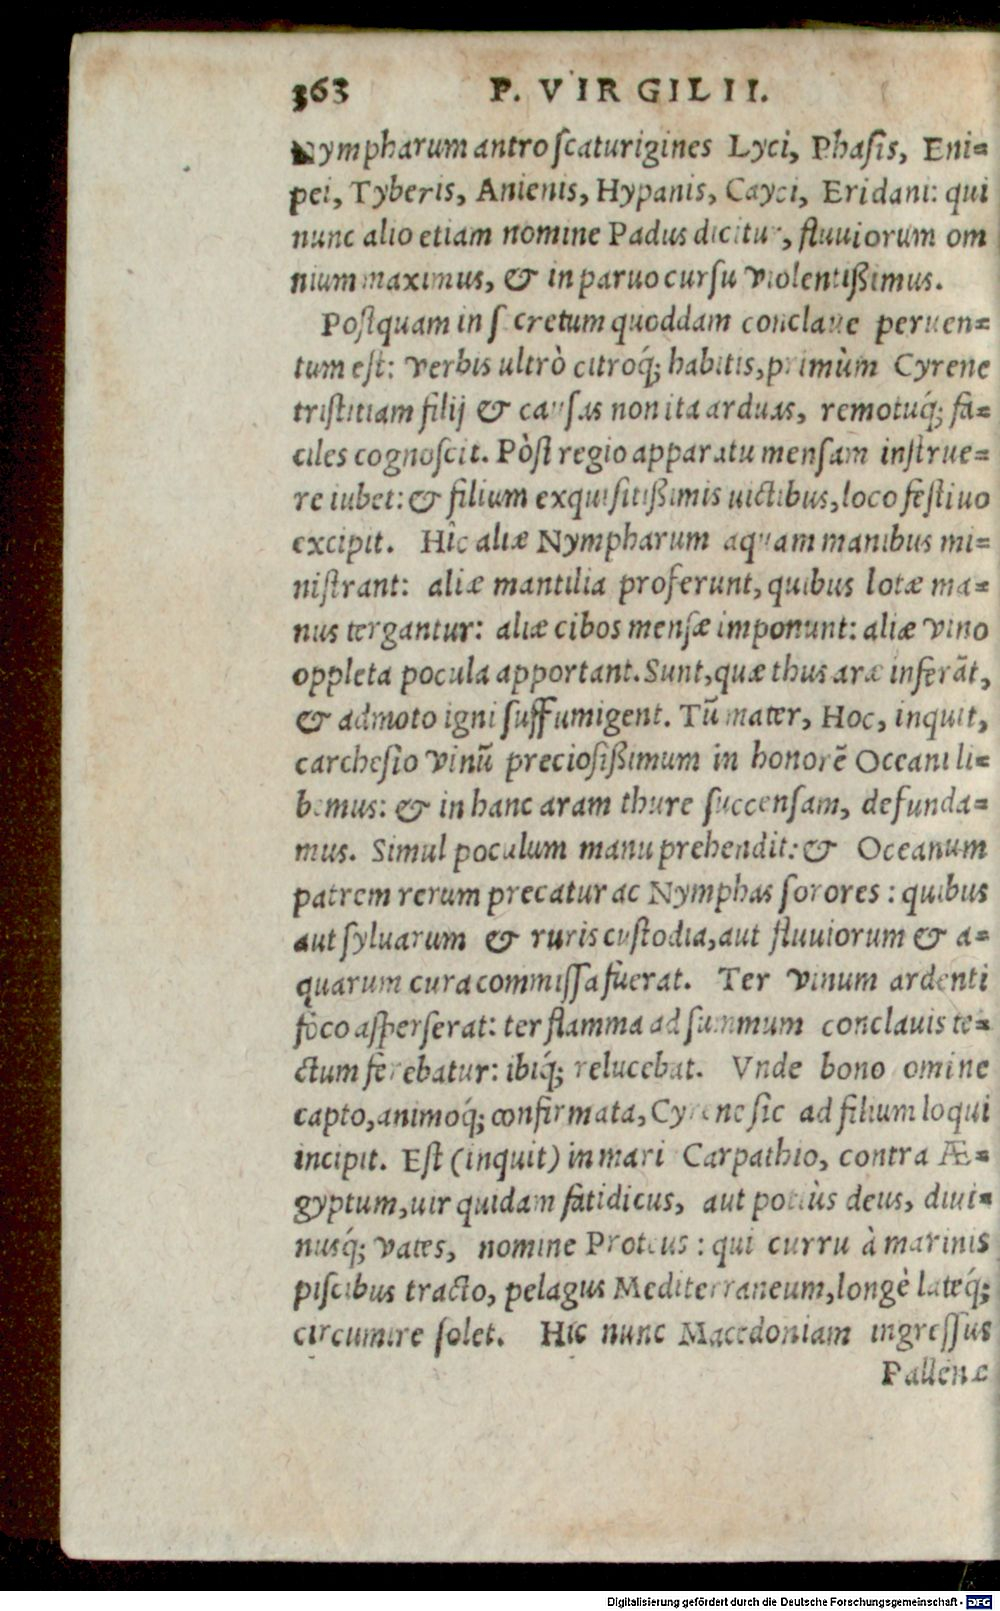 363 P. VIRGILII.
Nympharum antro scaturigines Lyci, Phasis, Eni=
pei, Tyberis, Anienis, Hypanis, Cayci, Eridani: qui
nunc alio etiam nomine Padus dicitur, fluuiorum om
nium maximus, & in paruo cursu violentißimus.
Postquam in secretum quoddam conclaue peruen=
tum est: verbis ultrò citroq́; habitis, primùm Cyrene
tristitiam filij & causas non ita arduas, remotuq́; fa=
ciles cognoscit. Pòst regio apparatu mensam instrue=
re iubet: & filium exquisitißimis uictibus, loco festiuo
excipit. Hîc aliæ Nympharum aquam manibus mi=
nistrant: aliæ mantilia proferunt, quibus lotæ ma=
nus tergantur: aliæ cibos mensæ imponunt: aliæ vino
oppleta pocula apportant. Sunt, quæ thus aræ inferãt,
& admoto igni suffumigent. Tũ mater, Hoc, inquit,
carchesio vinũ preciosißimum in honorẽ Oceani li=
bemus: & in hanc aram thure succensam, defunda=
mus. Simul poculum manu prehendit: & Oceanum
patrem rerum precatur ac Nymphas sorores: quibus
aut syluarum & ruris custodia, aut fluuiorum & a=
quarum cura commissa fuerat. Ter vinum ardenti
foco asperserat: ter flamma ad summum conclauis te=
ctum ferebatur: ibiq́; relucebat. Vnde bono omine
capto, animoq́; confirmata, Cyrene sic ad filium loqui
incipit. Est (inquit) in mari Carpathio, contra Æ=
gyptum, uir quidam fatidicus, aut potiùs deus, diui=
nusq́; vates, nomine Proteus: qui curru à marinis
piscibus tracto, pelagus Mediterraneum, longè lateq́;
circumire solet. Hic nunc Macedoniam ingressus
Pallene
Digitalisierung gefördert durch die Deutsche Forschungsgemeinschaft - DFG